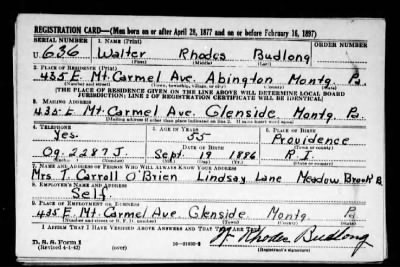 REGISTRATION CARD—(Men born on or after April 28, 1877 and on or before February 16, 1897)
SERIAL NUMBER 1. NAME (Print) ORDER NUMBER
U. 636 Walter Rhodes Budlong
2. PLACE OF RESIDENCE (Print)
435 E. Mt. Carmel Ave. Abington Montg. Pa
(THE PLACE OF RESIDENCE GIVEN ON THE LINE ABOVE WILL DETERMINE LOCAL BOARD
JURISDICTION; LINE 2 OF REGISTRATION CERTIFICATE WILL BE IDENTICAL)
3. MAILING ADDRESS
435 E. Mt. Carmel Ave. Glenside Montg. Pa.
(Mailing address if other than place indicated on line 2. If same insert word same)
4. TELEPHONE 5. AGE IN YEARS 6. PLACE OF BIRTH
Yes. 55 Providence
DATE OF BIRTH (Town or county)
Og. 2287 J. Sept. 19 1886 R.I.
7. NAME AND ADDRESS OF PERSON WHO WILL ALWAYS KNOW YOUR ADDRESS
Mrs T. Carroll O'Brien Lindsay Lane Meadow Brook
8. EMPLOYER'S NAME AND ADDRESS
Self.
9. PLACE OF EMPLOYMENT OR BUSINESS
435 E. Mt Carmel Ave. Glenside Montg. Pa
I AFFIRM THAT I HAVE VERIFIED ABOVE ANSWERS AND THAT THEY ARE TRUE.
D. S. S. Form 1
(Revised 4-1-42) (over)
W. Rhodes Budlong
(Registrant's signature)